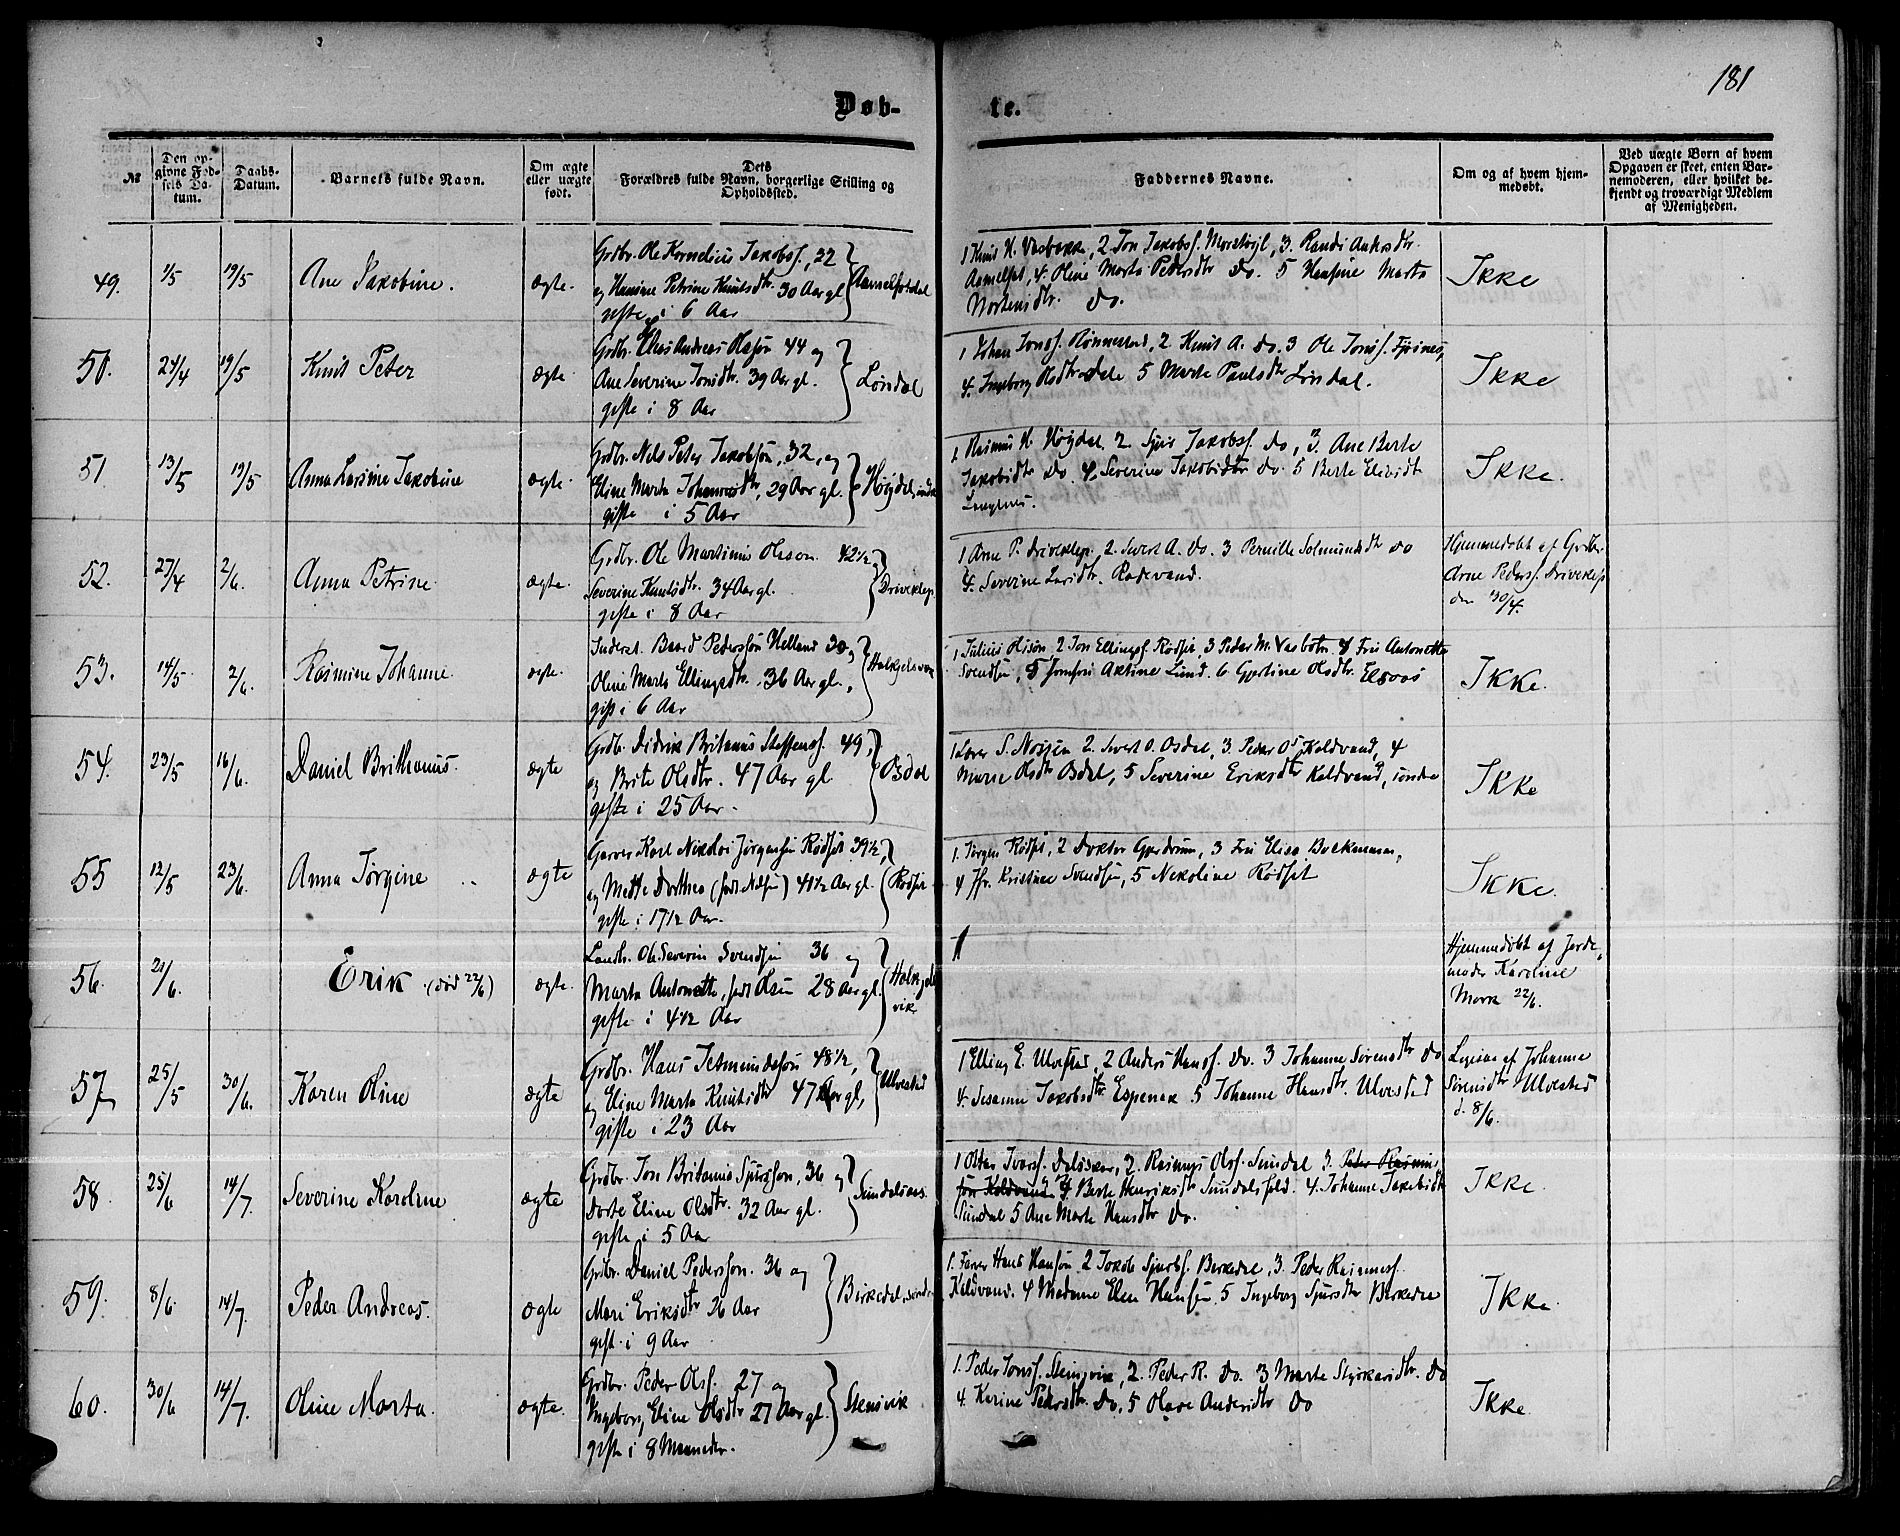 181
Døb-
te.
№
Den op-
givne Fød-
sels Da-
tum.
Daabs-
Datum.
Barnets fulde Navn.
Om ægte
eller uægte
født.
Dets
Forældres fulde Navn, borgerlige Stilling og
Opholdssted.
Faddernes Navne.
Om og af hvem hjem-
medøbt.
Ved uægte Børn af hvem
Opgaven er skeet, enten Bar-
nemoderen, eller hvilket be-
kjendt og troværdigt Medlem
af Menigheden.
49.
1/5
19/5
Ane Jakobine.
ægte.
Grdbr. Ole Kornelius Jakobss., 22
og Hansine Petrine Knutsdtr. 30 Aar gl
gifte i 6 Aar
1 Knut K. 2 Jon Jakobss. 3. Randi
4. Oline Marta Pedersdtr do. 5 Hansine Marta
Mortensdtr. do.
Ikke
50.
24/4
19/5
Knut Peter
ægte
Grdbr. Elias Andreas Olsøn 44 og
Ane Severine Jonsdtr. 39 Aar gl.
gifte i 8 Aar
Løndal
1 Johan Jonss. 2 Knut A. do. 3 Ole Jonss.
4. Ingeborg Olsdtr. 5 Marte Paulsdtr Løndal.
Ikke
51.
13/5
19/5
Anna Lovine Jakobine
ægte.
Grdbr. Nils Peter Jakobsøn, 32, og
Eline Marta Johannesdtr, 29 Aar gl.
gifte i 5 Aar
Høydal,
1. Rasmus K. Høydal 2. Sjur Jakobss. do, 3. Ane Berte
Jakobsdtr do. 4. Severine Jakobsdtr do. 5 Berte
Ikke.
52.
27/4
2/6.
Anna Petrine.
ægte.
Grdbr. Ole Martinus Olsson. 42½ og
Severine Knutsdtr. 34 Aar gl.
gifte i 8 Aar
Driveklep
1 Arne P. Driveklep. 2. Sivert A. do. 3 Pernille do
4. Severine Larsdtr.
Hjemmedøbt af Grdbr.
Arne Pederss. Driveklep
den 30/4.
53.
14/5
2/6.
Rasmine Johanne.
ægte.
Inderst. Baard Pederssøn Helland 30,
Oline Marta Ellingsdtr. 36 Aar gl.,
gift i 6 Aar
1 Julius Olsøn, 2 Jon Ellingss. Rødset, 3 Peder M. Vasbotn 4 Fru Antonette
Svendsen, 5 Jomfru Aktine Lund. 6 Gjertine Olsdtr.
Ikke.
54.
23/5
16/6.
Daniel Brithanus.
ægte
Grdbr. Didrik Britanus Steffenss. 49,
og Brite Olsdtr. 47 Aar gl
gifte i 25 Aar.
Osdal
2. Sivert O. Osdal, 3. Peder Koldvand, 4
Marie Olsdtr Osdal, 5 Severine Eriksdtr Koldvand, søndre
Ikke
55
12/5
23/6.
Anna Jørgine
ægte
Garver Karl Nikolai Jørgensen Rødset 39½,
og Mette Dorthea 41½ Aar gl.
gifte i 17½ Aar.
Rødset
1. Jørgen Rødset, 2 Doktor Gjerdrum, 3 Fru Elisa
4 Jfr. Kristine Svendsen, 5 Nikoline Rødset
Ikke.
56.
21/6.
Erik (død 22/6)
ægte.
Landh. Ole Severin Svendsen 36 og
Marta Antonette, født Olsen 28 Aar gl.
gifte i 4½ Aar
Hjemmedøbt af Jorde-
moder Karoline
Mork 22/6.
57
25/5
30/6.
Karen Oline
ægte
Grdbr. Hans Jetmundssøn 48½,
og Eline Marta Knutsdtr 47 Aar gl,
gifte i 23 Aar
Ulvestad
1 Elling E. Ulvestad, 2 Anders Hanss. do. 3 Johanne Sørensdtr do
4. Susanne Jakobsdtr. Espenak 5 Johanne Hansdtr. Ulvestad
af Johanne
Sørensdtr Ulvestad
d. 8/6.
58.
25/6
14/7.
Severine Karoline
ægte
Grdbr. Jon Britanus Sjurssøn, 36 og
Dorte Eline Olsdtr. 32 Aar gl.
gifte i 5 Aar
1 Ivarss. 2. Rasmus Olss. Sundal 3. Peder
Koldvand Berte Henriksdtr 4. Johanne Jakobsdtr
Sundal 5 Ane Marte Hansdtr do.
Ikke.
59.
8/6.
14/7.
Peder Andreas.
ægte
Grdbr. Daniel Pederssøn. 36 og
Mari Eriksdtr 26 Aar
gift i 9 Aar
Birkedal, søndre
1. Farver Hans Hansøn. 2 Jakob Sjurss. Birkedal, 3. Peder Rasmuss.
Koldvand. 4 Madame Elen Hansen. 5 Ingeborg Sjursdtr Birkedal
Ikke.
60.
30/6
14/7.
Oline Marta.
ægte.
Grdbr. Peder Olss. 27 og
Ingeborg Eline Olsdtr 27 Aar gl
gifte i 8 Maaneder.
Stensvik
1. Peder Jonss. 2. Peder R. do. 3 Marte do
4. Karine Pedersdtr. do. 5 Olave Andersdtr do
Ikke